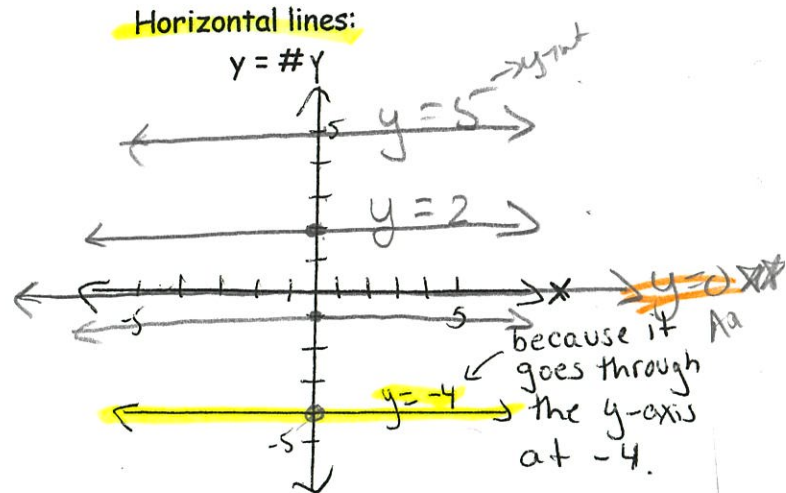 Horizontal lines:
y = # Y
y = 5 → y-int
5
y = 2
x
y = 0
-5
5
because it
goes through
the y-axis
at -4.
y = -4
-5